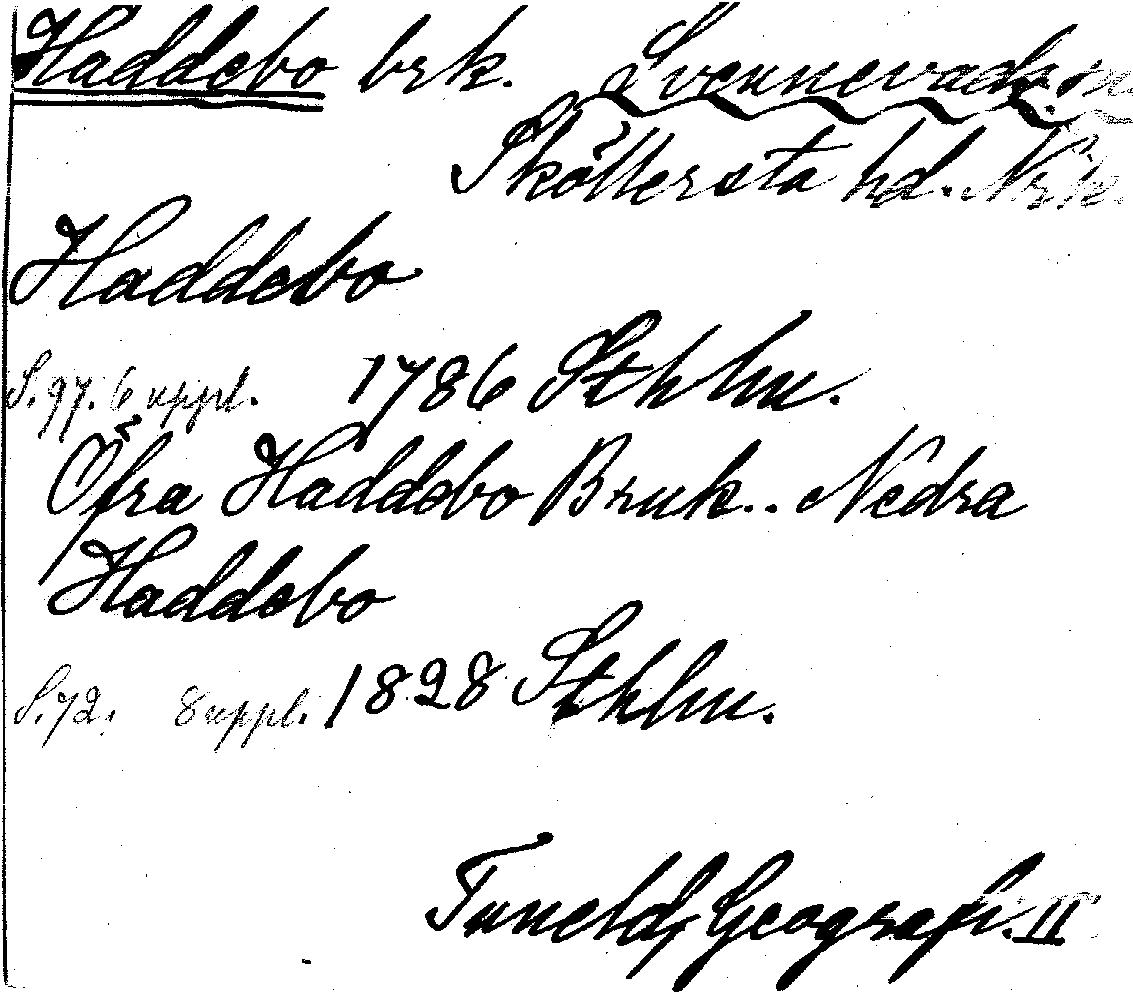 Haddebo brk. Svennevads sn.
Sköllersta hd. Nrke.
Haddebo
S. 97. 6 uppl. 1786 Sthlm.
Öfra Haddebo Bruk.. Nedra
Haddebo
S. 72. 8 uppl. 1828 Sthlm.
Tuneld, Geografi. II